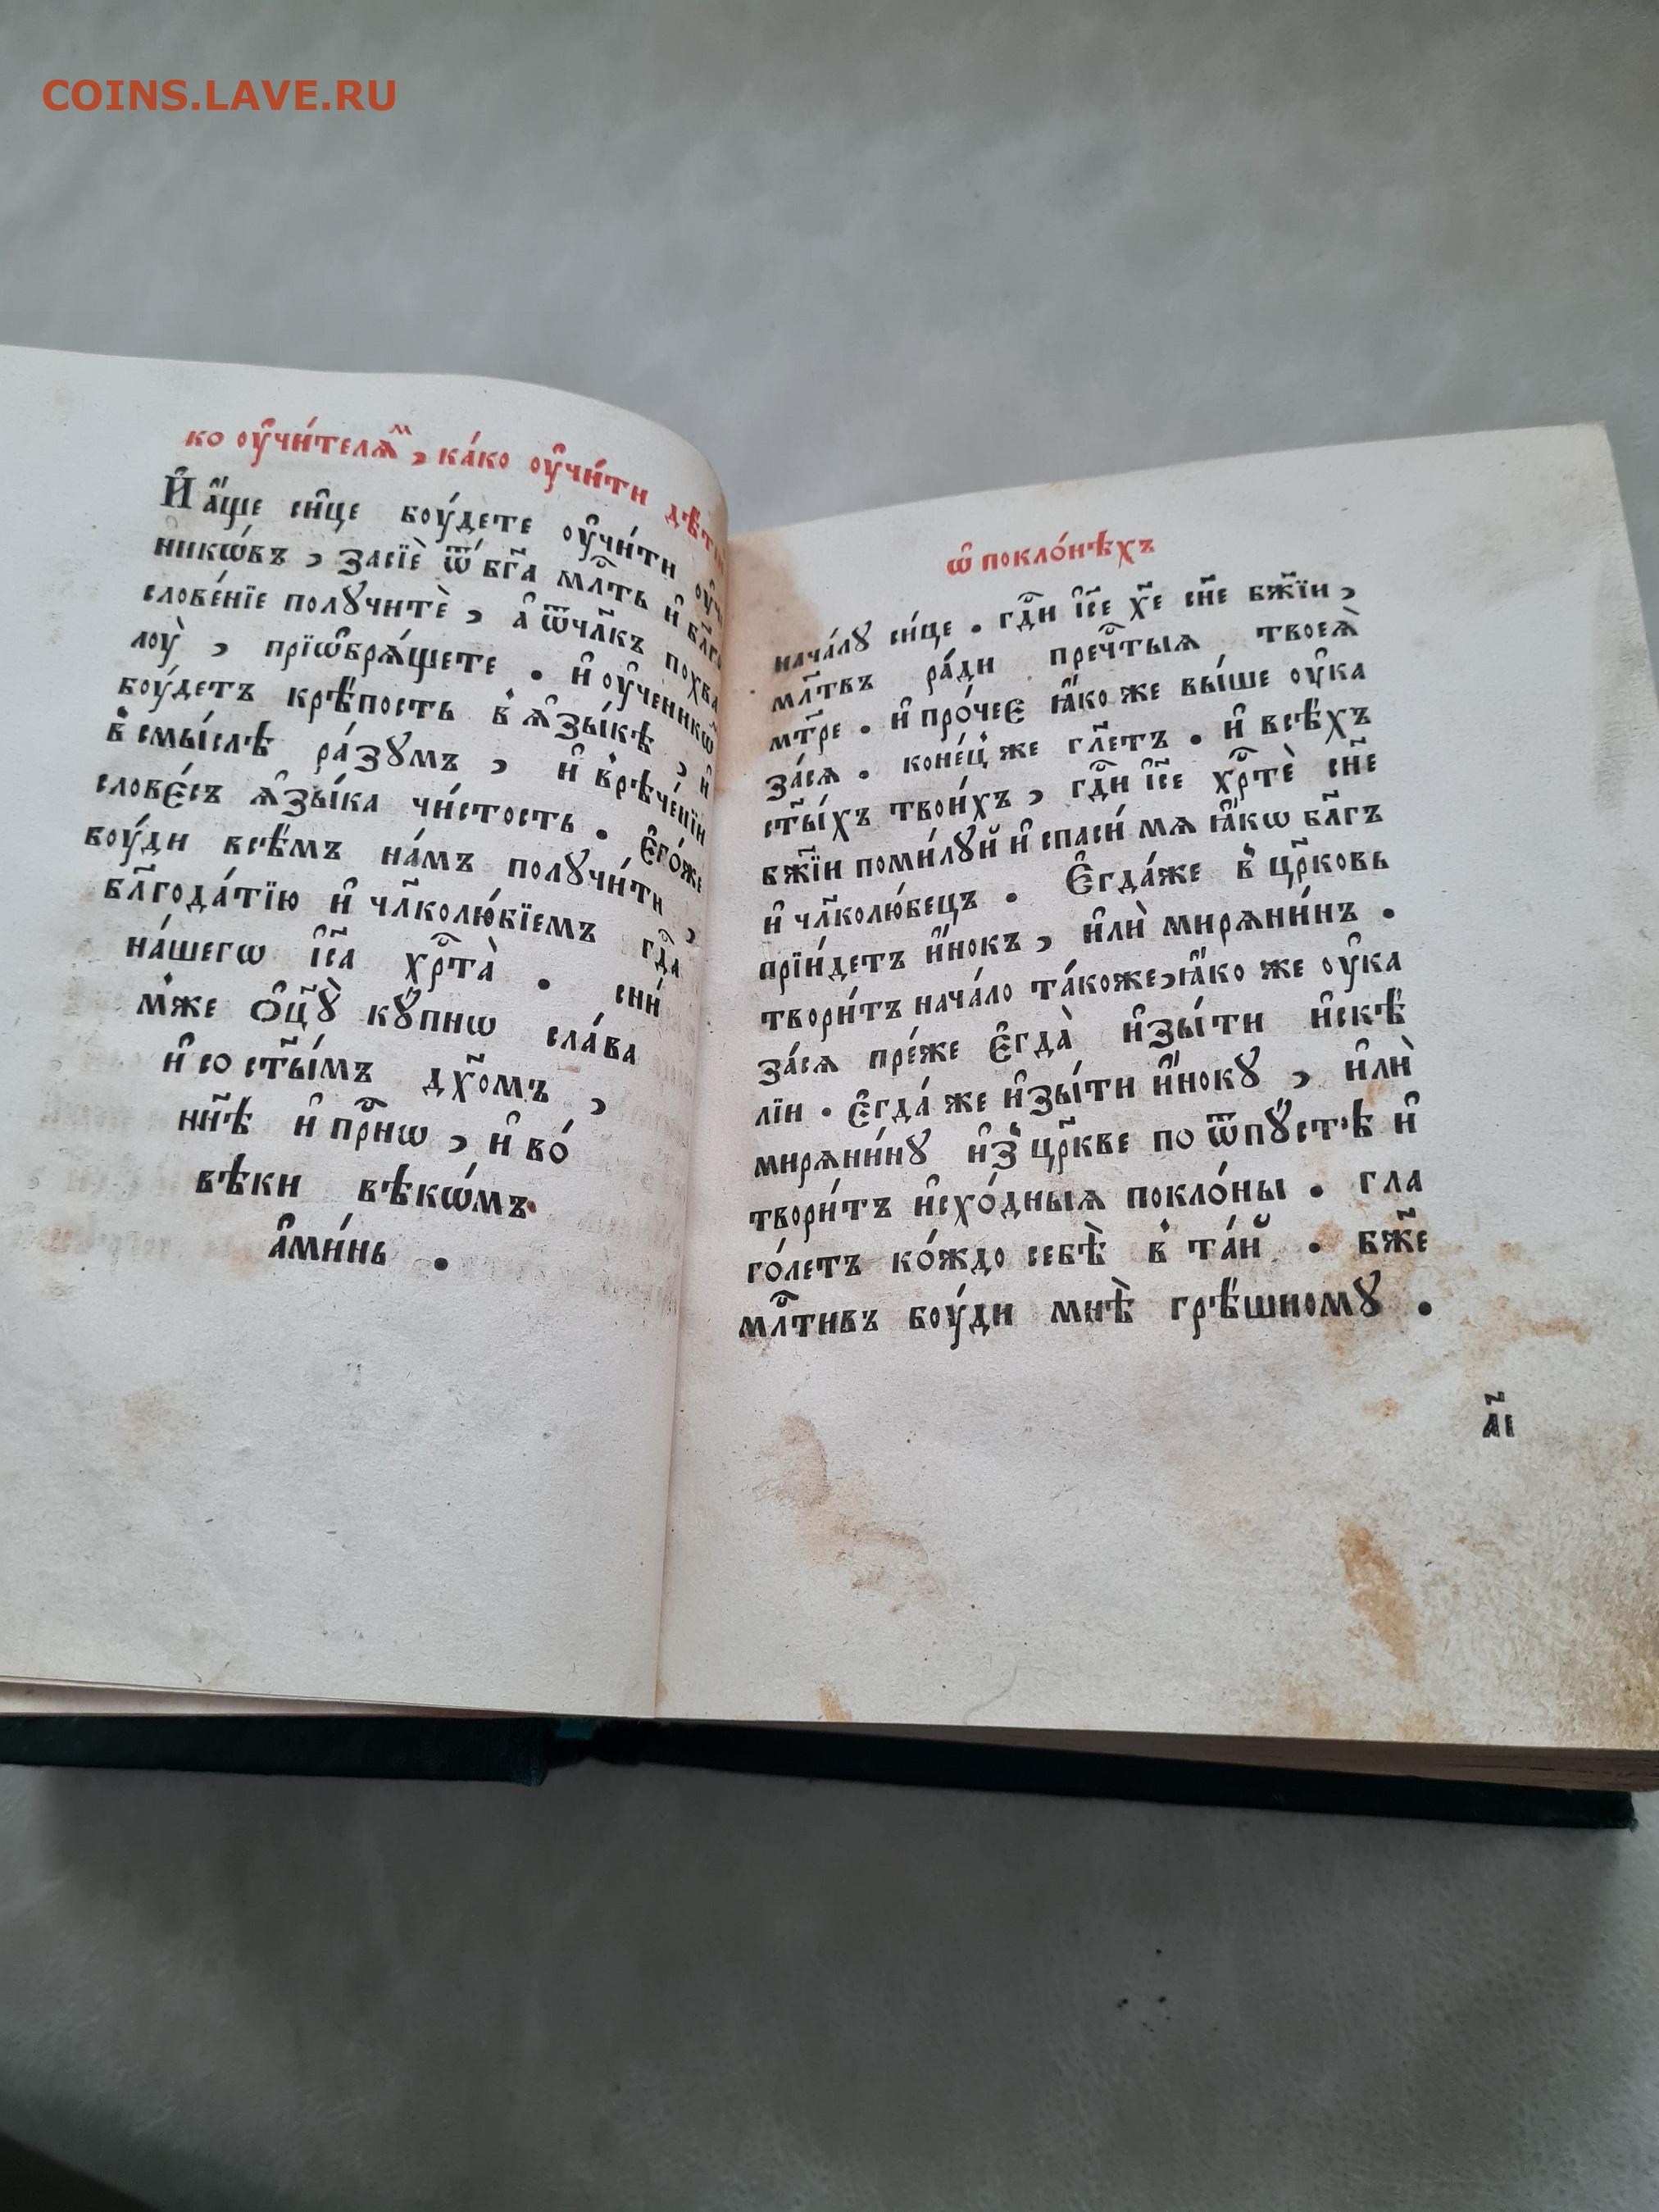 COINS.LAVE.RU
ко ᲂу҆чи́телѧⷨ, ка́ко ᲂу҆чи́ти дѣ́ти
И҆ а҆́ще си́це боу́дете ᲂу҆чи́ти ᲂу҆че
никѡ́въ, засїѐ ѿ бг҃а млⷭ҇ть и҆ бл҃го
слове́нїе полꙋчитѐ, а҆ ѿ чл҃къ похва
лоу̀, прїѡ҆брѧ́щете. и҆ ᲂу҆ченикѡⷨ
боу́детъ крѣ́пость в̾ ѧ҆зы́кѣ, и҆
в̾смы́слѣ ра́зꙋмъ, и҆ в̾рѣче́нїи
слове́съ ѧ҆зы́ка чи́стость. є҆го́же
боу́ди всѣ́мъ на́мъ полꙋчи́ти,
бл҃года́тїю и҆ чл҃колю́бїемъ гдⷭ҇а
на́шегѡ і҆с҃а хрⷭ҇та̀. сни́
м̾же ѻ҆ц҃ꙋ̀ кꙋ́пнѡ сла́ва
и҆ со ст҃ы́мъ дх҃омъ,
нн҃ѣ и҆ прⷭ҇нѡ, и҆ во́
вѣки вѣкѡ́мъ
а҆ми́нь.
ѡ҆ покло́нѣхъ
нача́лꙋ си́це. гдⷭ҇и і҆с҃е х҃е сн҃е бж҃їи,
мл҃твъ ра́ди пречⷭ҇тыѧ твоеѧ̀
мт҃ре. и҆ про́чее ꙗ҆́ко же вы́ше ᲂу҆ка
за́сѧ. коне́ц̾ же гл҃етъ. и҆ всѣ́хъ
ст҃ы́хъ твои́хъ, гдⷭ҇и і҆с҃е хрⷭ҇тѐ сн҃е
бж҃їи поми́лꙋй и҆ спаси́ мѧ ꙗ҆́кѡ бл҃гъ
и҆ чл҃колю́бецъ. Є҆гда́же в̾ цр҃ковь
прїи́детъ и҆́нокъ, и҆лѝ мирѧни́нъ.
твори́тъ нача́ло та́коже, ꙗ҆́ко же ᲂу҆ка
за́сѧ пре́же є҆гда̀ и҆зы́ти и҆скѣ́
лїи. є҆гда́ же и҆зы́ти и҆́нокꙋ, и҆лѝ
мирѧни́нꙋ и҆з̾ цр҃кве по ѿпꙋ́стѣ и҆
твори́тъ и҆схо́дныѧ покло́ны. гла
го́летъ ко́ждо себѣ̀ в̾ та́й. бж҃е
млⷭ҇тивъ боу́ди мнѣ̀ грѣ́шномꙋ.
а҃і